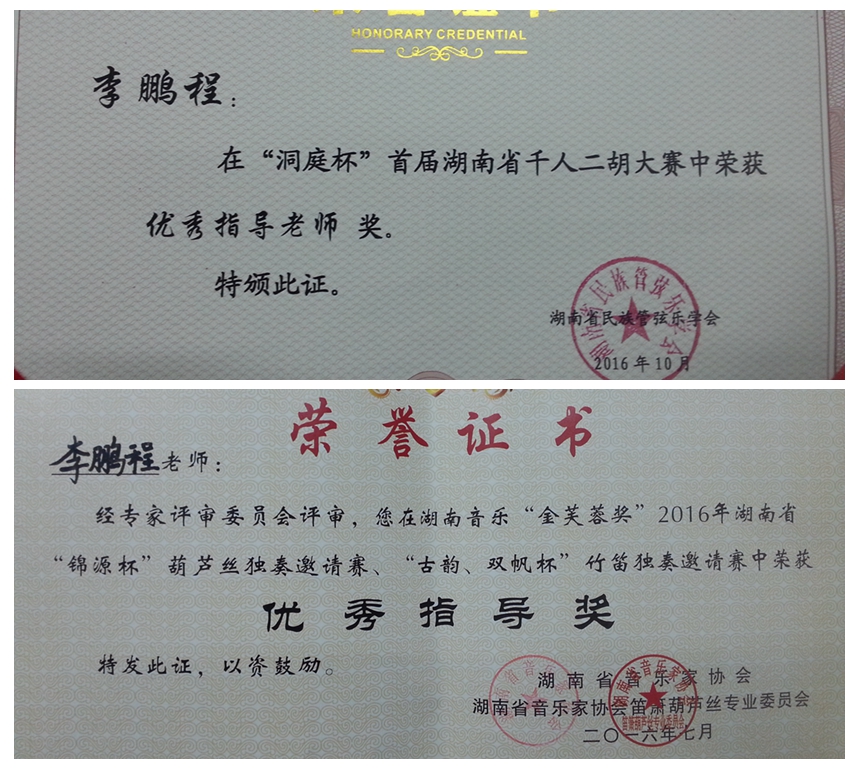 HONORARY CREDENTIAL
李鹏程：
在“洞庭杯”首届湖南省千人二胡大赛中荣获
优秀指导老师 奖。
特颁此证。
湖南省民族管弦乐学会
湖南省民族管弦乐学会
2016年10月
荣誉证书
李鹏程老师：
经专家评审委员会评审，您在湖南音乐“金芙蓉奖”2016年湖南省
“锦源杯”葫芦丝独奏邀请赛、“古韵、双帆杯”竹笛独奏邀请赛中荣获
优秀指导奖
特发此证，以资鼓励。
湖南省音乐家协会
湖南省音乐家协会笛箫葫芦丝专业委员会
湖南省音乐家协会
笛箫葫芦丝专业委员会
二〇一六年七月